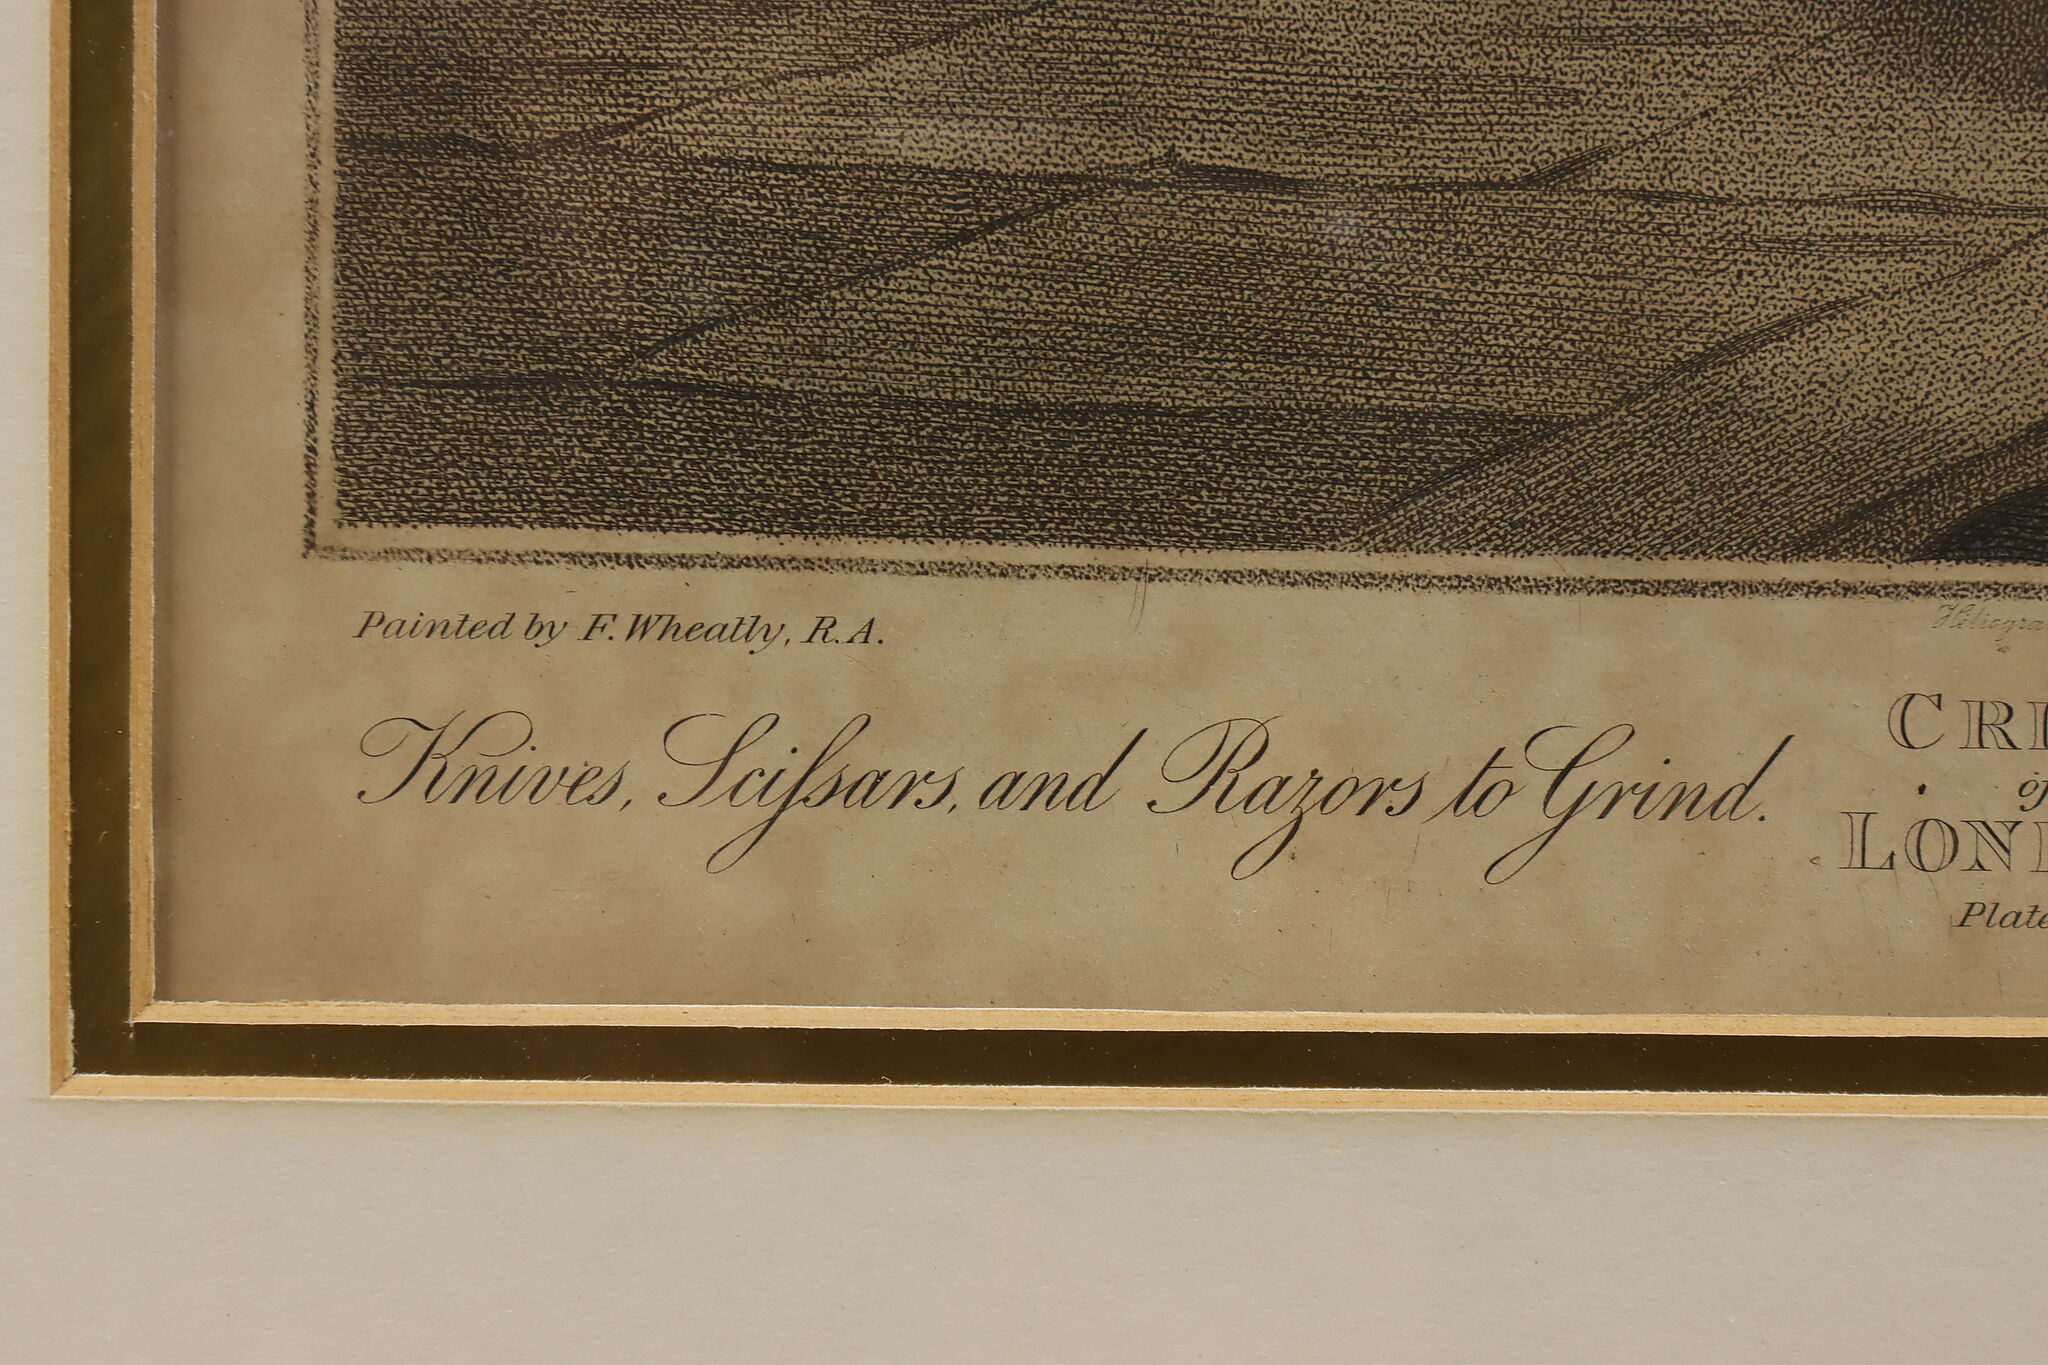 Painted by F. Wheatly, R.A.
Heliogra
Knives, Sciſsars, and Razors to Grind.
CRI
of
LON
Plate